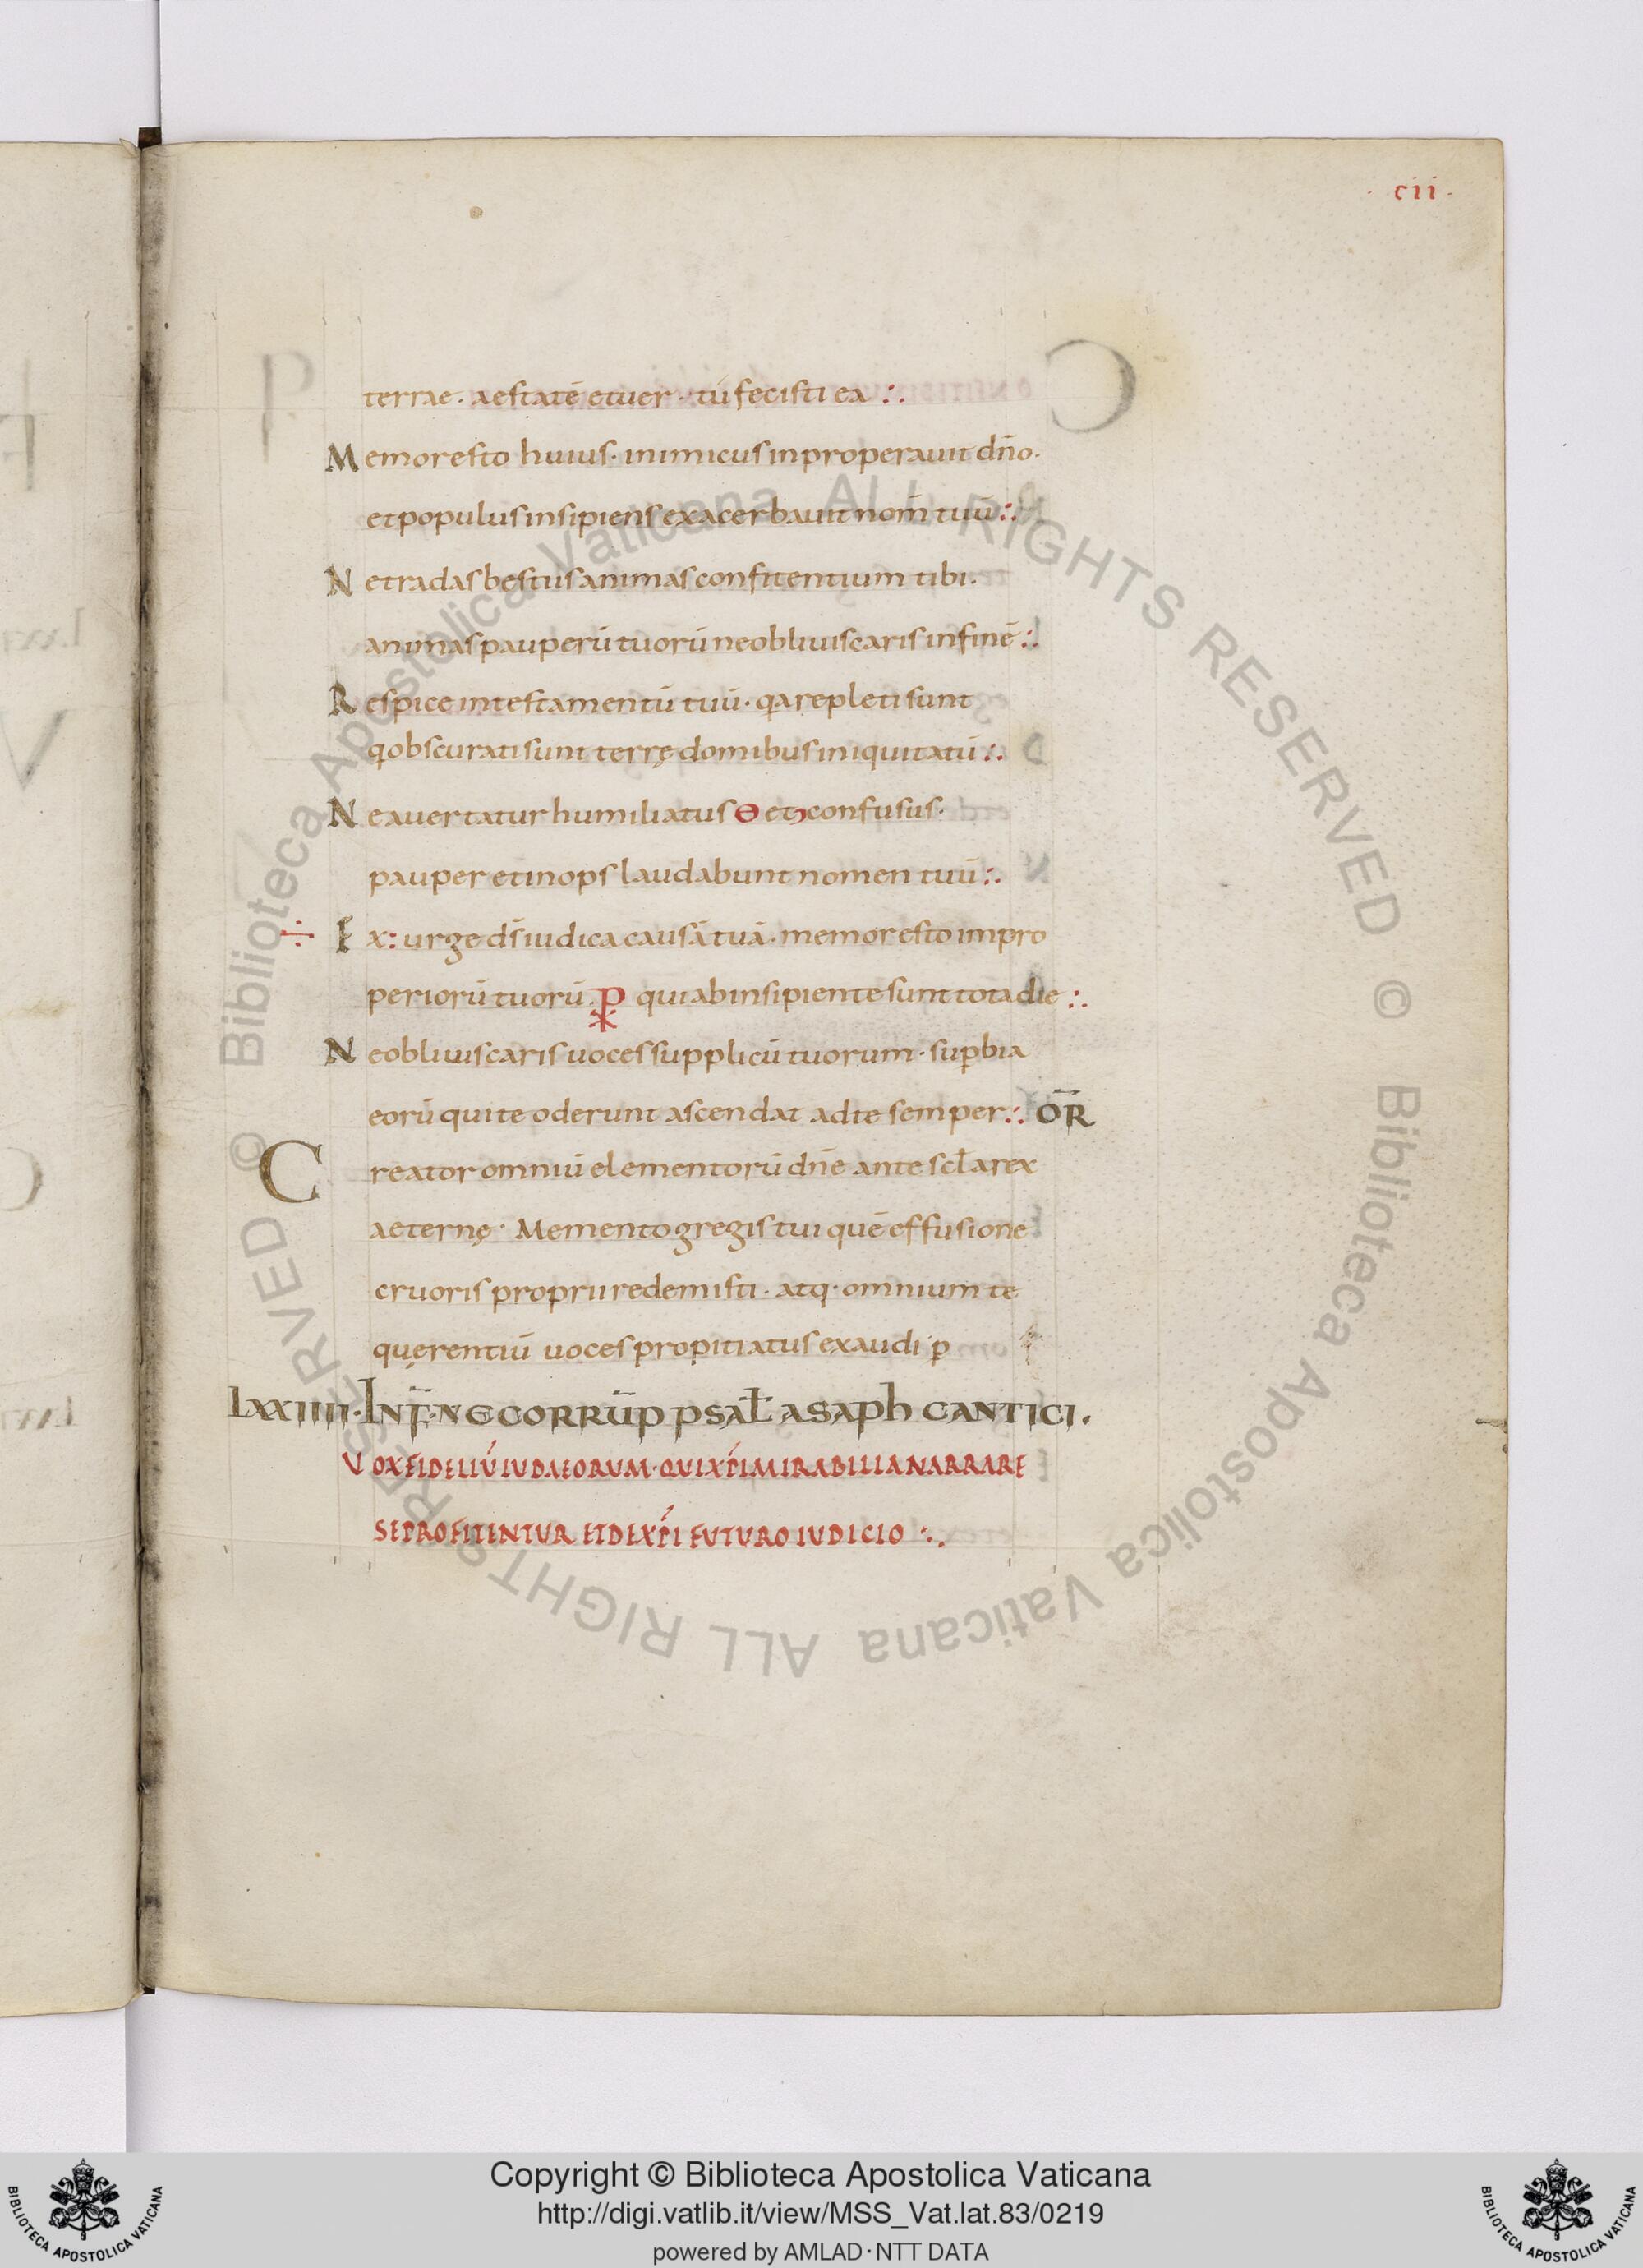 · cii ·
terrae · aestatē et uer · tu fecisti ea ∴
Memor esto huius · inimicus inproperauit dn̄o ·
et populus insipiens exacerbauit nom̄ tuū ∴
Ne tradas bestiis animas confitentium tibi ·
animas pauperū tuorū ne obliuiscaris in finē ∴
Respice in testamentū tuū · qa repleti sunt
q obscurati sunt terrę domibus iniquitatū ∴
Ne auertatur humiliatus Θ et confusus ·
pauper et inops laudabunt nomen tuū ∴
÷ Ex:urge ds̄ iudica causā tuā · memor esto impro
periorū tuorū · P qui ab insipiente sunt tota die ∴
Ne obliuiscaris uoces supplicū tuorum · supbia
eorū qui te oderunt ascendat ad te semper ∴ OR̄
Creator omniū elementorū dn̄e ante scl̄a rex
aeternę · Memento gregis tui quē effusione
cruoris proprii redemisti · atq · omnium te
quęrentiū uoces propitiatus exaudi p
LXXIIII · IN F̄ · NE CORRŪP PSAL̄ ASAPH CANTICI ·
VOX FIDELIŪ IUDAEORUM · QUI XP̄I MIRABILIA NARRARE
SE PROFITENTUR ET DE XP̄I FUTURO IUDICIO ∴
© Biblioteca Apostolica Vaticana ALL RIGHTS RESERVED © Biblioteca Apostolica Vaticana ALL RIGHTS RESERVED
Copyright © Biblioteca Apostolica Vaticana
http://digi.vatlib.it/view/MSS_Vat.lat.83/0219
powered by AMLAD·NTT DATA
BIBLIOTECA APOSTOLICA VATICANA
BIBLIOTECA APOSTOLICA VATICANA